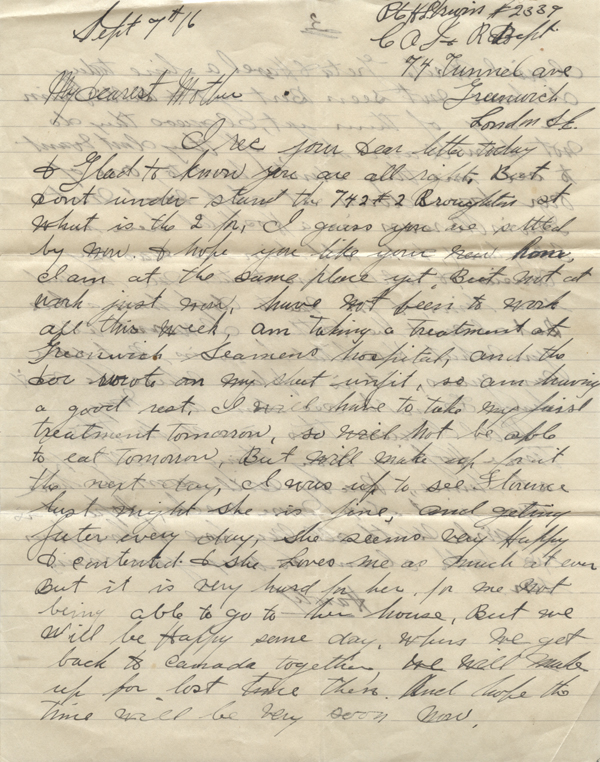 Sept 7th 16
3
Pte H Irwin # 2339
C A S R Dept
74 Tunnel ave
Greenwich
London S.E.
My dearest Mother
I rec your dear letter today
& Glad to know you are all right, But
dont under-stand the 742 # 2 Broughton st
what is the 2 for, I guess you are settled
by now. & hope you like your new home,
I am at the same place yet But not at
work just now, have not been to work
all this week, am taking a treatment at
Greenwich Seamens hospital, and the
Doc wrote on my sheet unfit, so am having
a good rest. I will have to take my first
treatment tomorrow, so will not be able
to eat tomorrow, But will make up for it
the next day, I was up to see Florence
last night she is fine, and getting
fater every day, she seems very Happy
& contented & she loves me as much as ever
But it is very hard for her, for me not
being able to go to her house, But we
will be Happy some day, when we get
back to Canada together, we will make
up for lost time then. And hope the
time will be very soon now.